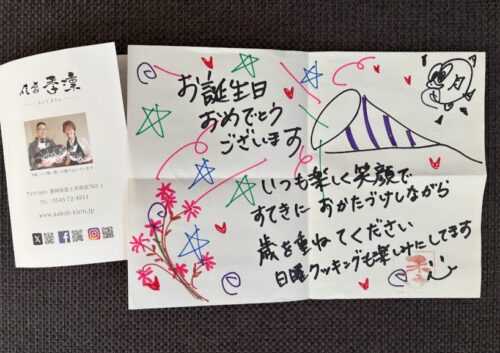 佳肴 季凛
お誕生日
おめでとう
ございます
いつも楽しく笑顔で
すてきに おかたづけしながら
歳を重ねてください
日曜クッキングも楽しみにしてます
TEL:0545-72-4911
www.kakoh-kirin.jp